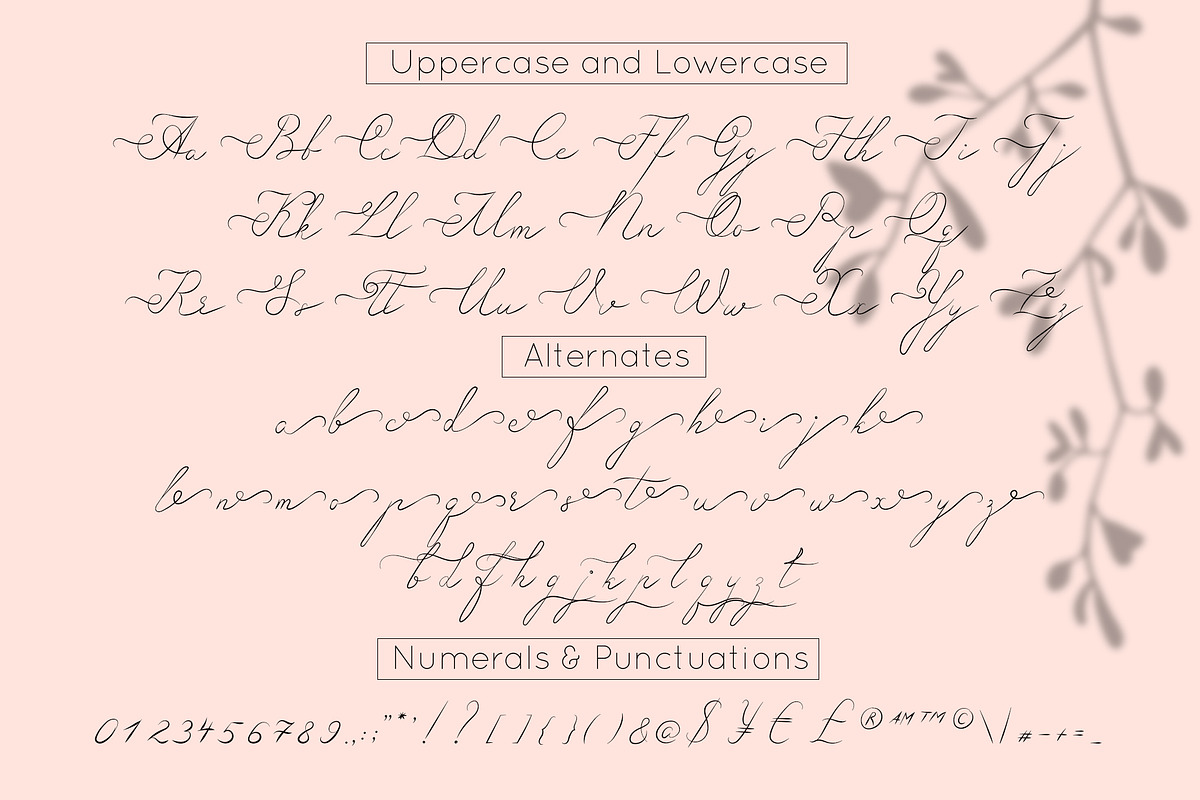 Uppercase and Lowercase
Aa Bb Cc Dd Ee Ff Gg Hh Ii Jj
Kk Ll Mm Nn Oo Pp Qq
Rr Ss Tt Uu Vv Ww Xx Yy Zz
Alternates
a b c d e f g h i j k
l n m o p q r s t u v w x y z
b d f h g j k p l q y z t
Numerals & Punctuations
0123456789.,:;"*'!?[]{}()&@$¥€£®AM™©\|#-+=_